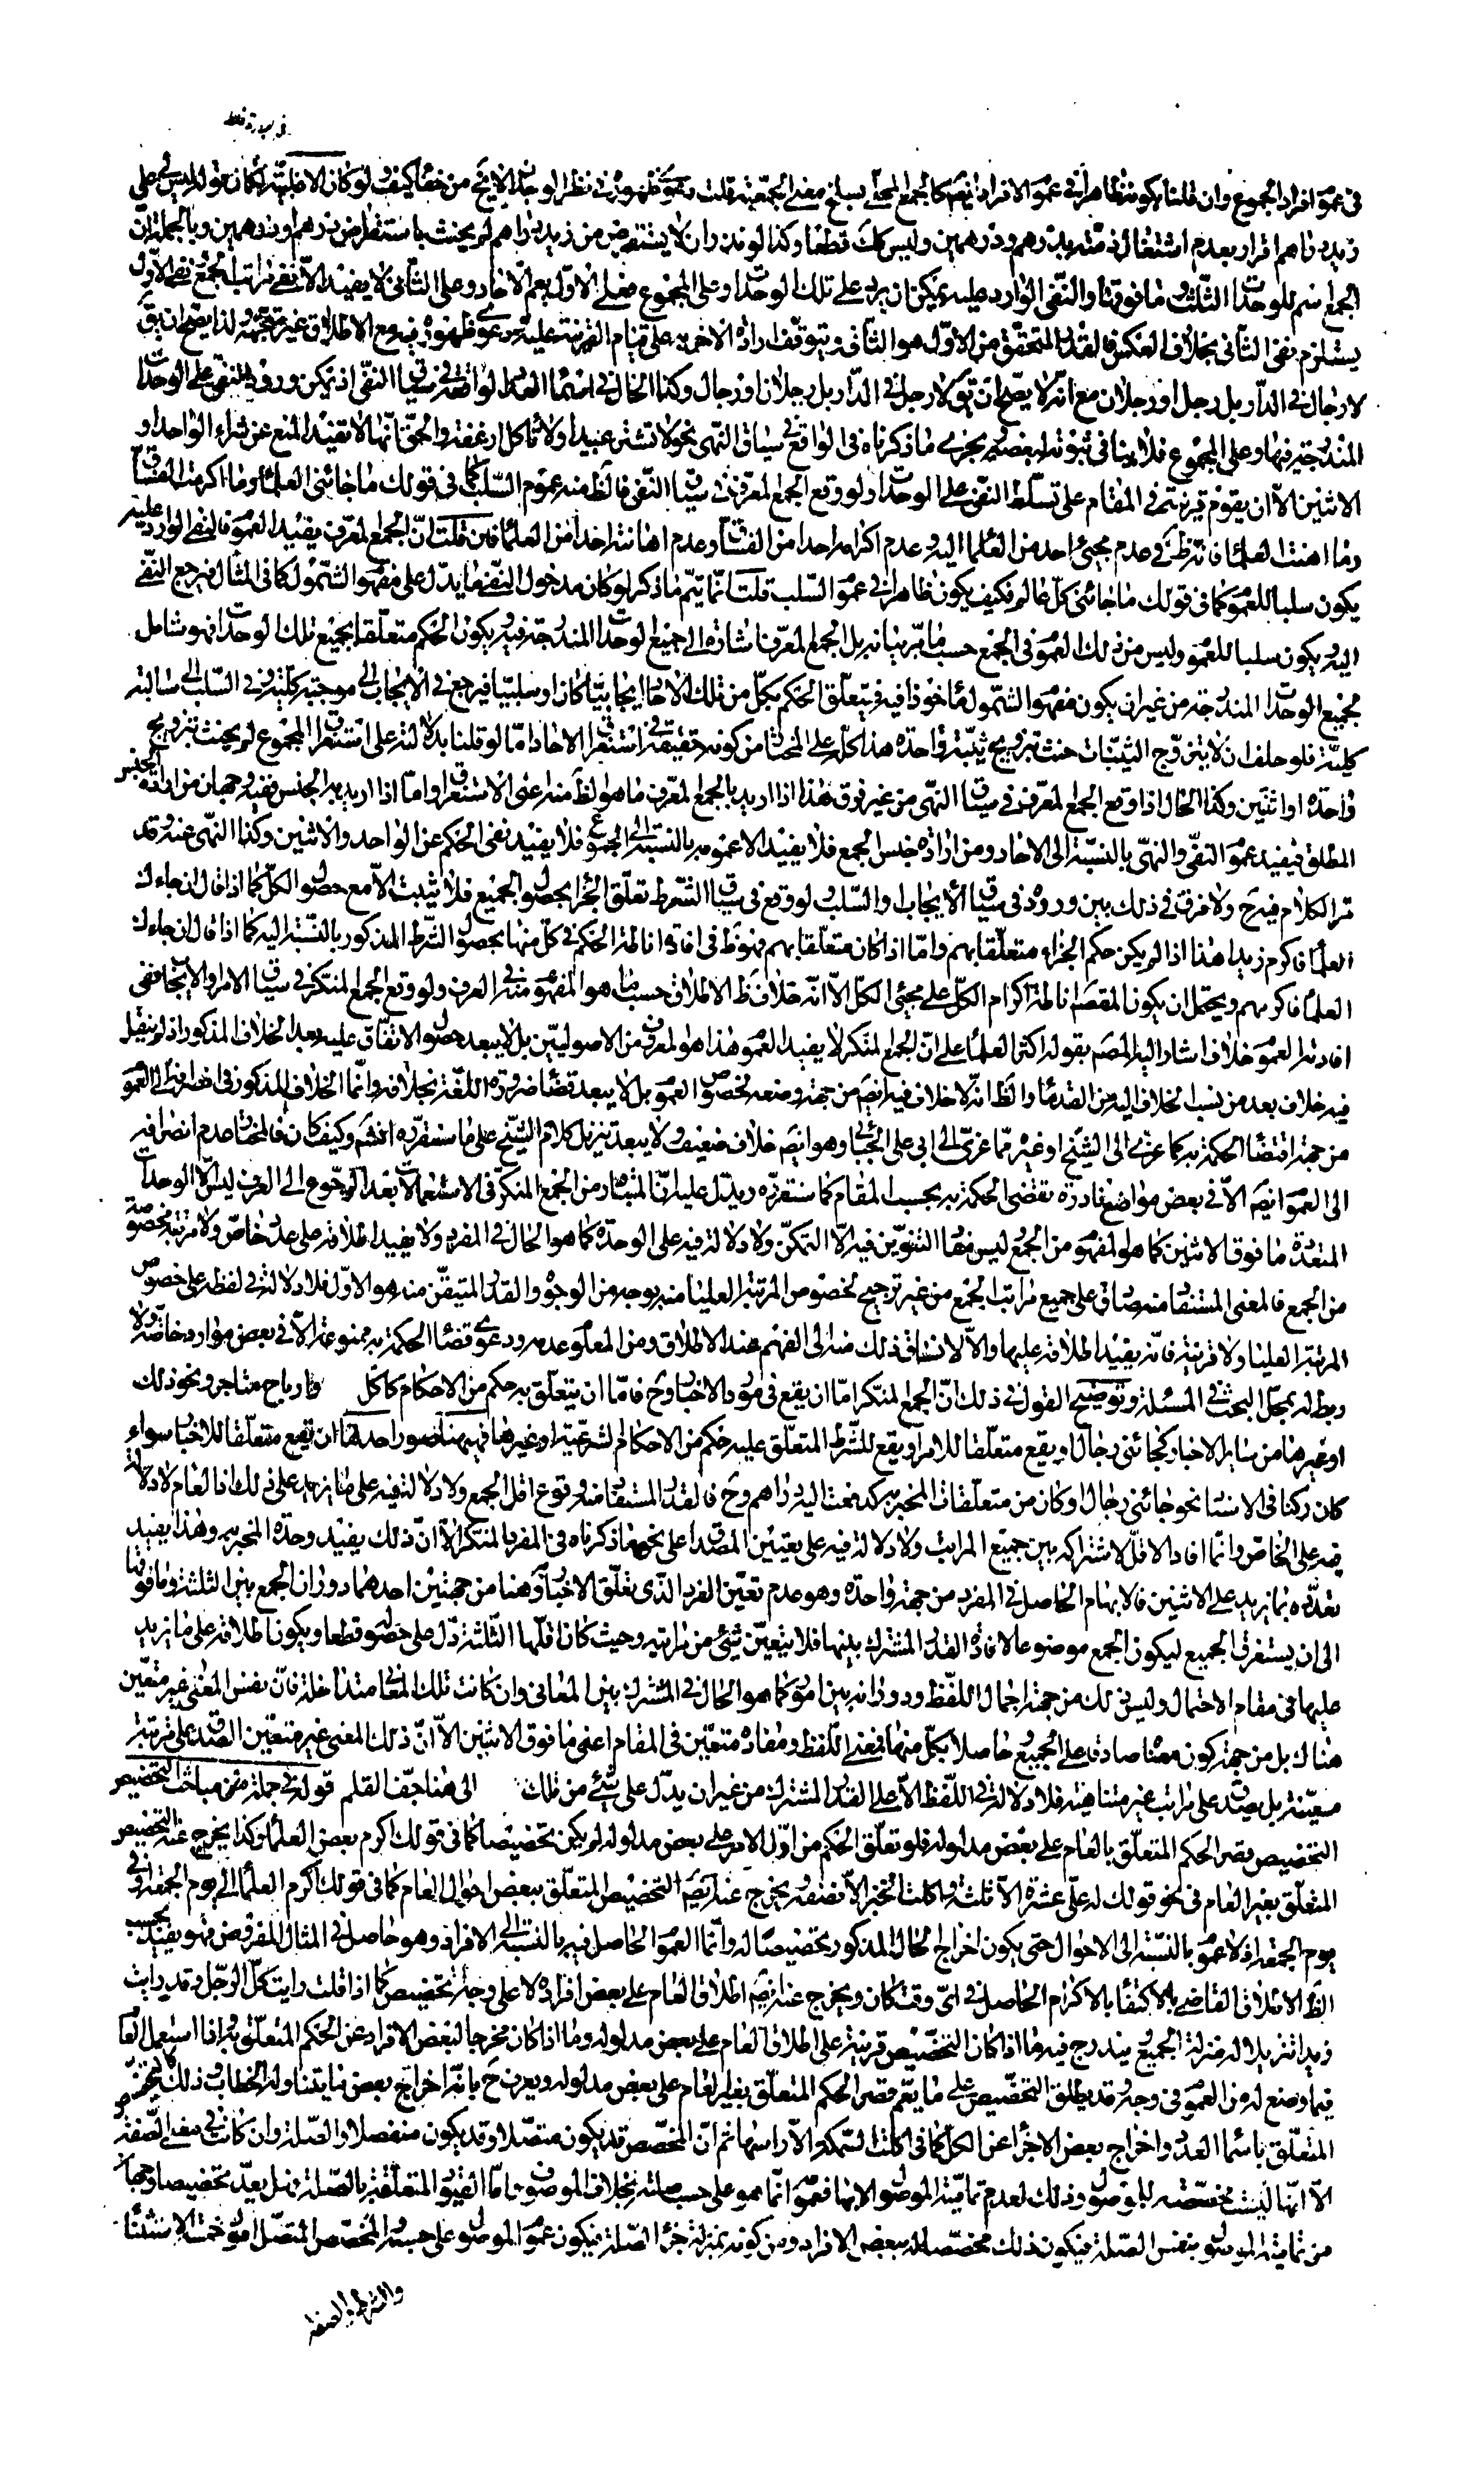 في عموم افراد الجموع وان قلنا بكونه ظاهرا في عموم الافراد ايضا كالجمع المحلى بسلخ معنى الجمعية قلت دعوى ظهوره في نظر الوحدان لا يخ من خفاء كيف ولو كان الا كان قوله ليس لي على
زيد دراهم اقرارا بعدم اشتغال ذمته بدرهم ودرهمين وليس كك قطعا وكذا لو نذر ان لا يستقرض من زيد دراهم لم يحنث باستقراض درهم او درهمين وبالجملة ان
الجمع اسم للوحدات الثلث وما فوقها والنفي الوارد عليه يمكن ان يرد على تلك الوحدات وعلى المجموع فعلى الاول يعم الآحاد وعلى الثاني لا يفيد الا نفي مراتب الجمع نفي الاول
يستلزم نفي الثاني بخلاف العكس فالقدر المتحقق من الاول هو الثاني ويتوقف ارادة الاخر على قيام القرينة عليه ودعوى ظهوره فيه مع الاطلاق غير متجه ولذا يصح ان يق
لا رجال في الدار بل رجل او رجلان مع انه لا يصح ان يق لا رجل في الدار بل رجلان او رجال وكذا الحال في اسماء العدد لو وقع في سياق النفي اذ يمكن ورود النفي على الوحدات
المندرجة فيها وعلى المجموع فلا ينافي ثبوته لبعضه ويجري ما ذكرناه في الواقع في سياق النهي نحو لا تشتر عبيدا ولا تاكل ارغفة والحق انها لا تفيد المنع عن شراء الواحد و
الاثنين الا ان يقوم قرينة في المقام على تسلط النفي على الوحدات ولو وقع الجمع المعرف في سياق النفي فالظ منه عموم السلب كما في قولك ما جائني العلماء وما اكرمت الفساق
وما اهنت العلماء فانه ظ في عدم مجيئ احد من العلماء اليه وعدم اكرامه احدا من الفساق وعدم اهانته احدا من العلماء فان قلت ان الجمع المعرف يفيد العموم فالنفي الوارد عليه
يكون سلبا للعموم كما في قولك ما جائني كل عالم فكيف يكون ظاهرا في عموم السلب قلت انما يتم ما ذكر لو كان مدخول النفي ما يدل على مفهوم الشمول كما في المثال فيرجع النفي
اليه ويكون سلبا للعموم وليس من ذلك العموم في الجمع حسبما مر بيانه بل الجمع المعرف اشارة الى جميع الوحدات المندرجة فيه ويكون الحكم متعلقا بجميع تلك الوحدات فهو شامل
لجميع الوحدات المندرجة من غير ان يكون مفهوم الشمول ماخوذا فيه فيتعلق الحكم بكل من تلك الآحاد ايجابيا كان او سلبيا فيرجع في الايجاب الى موجبة كلية وفي السلب الى سالبة
كلية فلو حلف ان لا يتزوج الثيبات حنث بتزويج ثيبة واحدة هذا كله على المختار من كونه حقيقة في استغراق الآحاد اما لو قلنا بدلالته على استغراق المجموع لم يحنث بتزويج
واحدة او اثنتين وكذا الحال اذا وقع الجمع المعرف في سياق النهي من غير فرق هذا اذا اريد بالجمع المعرف ما هو الظ منه اعني الاستغراق واما اذا اريد به الجنس ففيه وجهان من ارادة الجنس
المطلق فيفيد عموم النفي والنهي بالنسبة الى الاحاد ومن ارادة جنس الجمع فلا يفيد الا عمومه بالنسبة الى الجموع فلا يفيد نفي الحكم عن الواحد والاثنين وكذا النهي عنه وقد
مر الكلام فيه ح ولا فرق في ذلك بين وروده في سياق الايجاب والسلب لو وقع في سياق الشرط تعلق الجزاء بحصول الجميع فلا يثبت الا مع حصول الكل كما اذا قال ان جاءك
العلماء فاكرم زيدا هذا اذا لم يكن حكم الجزاء متعلقا بهم واما اذا كان متعلقا بهم فهو ظ في افادة اناطة الحكم في كل منها بحصول الشرط المذكور بالنسبة اليه كما اذا قال ان جاءك
العلماء فاكرمهم ويحتمل ان يكون المقصود اناطة اكرام الكل على مجيئ الكل الا انه خلاف ظ الاطلاق حسبما هو المفهوم منه في العرف ولو وقع الجمع المنكر في سياق الامر والايجاب ففي
افادته العموم خلاف اشار اليه المصنف بقوله اكثر العلماء على ان الجمع المنكر لا يفيد العموم هذا هو المعروف من الاصوليين بل لا يبعد حصول الاتفاق عليه بعد الخلاف المذكور اذ لم ينقل
فيه خلاف بعد من نسب الخلاف اليه من القدماء والظ انه لا خلاف فيه ايضا من جهة وضعه لخصوص العموم بل لا يبعد قضاء ضرورة اللغة بخلافه وانما الخلاف المذكور في انصرافه الى العموم
من جهة اقتضاء الحكمة به كما عزى الى الشيخ او غيره مما عزى الى ابي علي الجبائي وهو ايضا خلاف ضعيف ولا يبعد تنزيل كلام الشيخ على ما سنقرره انشاء وكيف كان فالمختار عدم انصرافه
الى العموم ايضا الا في بعض مواضع نادرة تقتضي الحكمة به بحسب المقام كما سنقرره ويدل عليه ان المتبادر من الجمع المنكر في الاستعمالات بعد الرجوع الى العرف ليس الا الوحدات
المتعددة ما فوق الاثنين كما هو المفهوم من الجمع ليس مفاد التنوين فيه الا التمكن ولا دلالة فيه على الوحدة كما هو الحال في المفرد ولا يفيد اطلاقه على عدد خاص ولا مرتبة مخصوصة
من الجمع فالمعنى المستفاد منه صادق على جميع مراتب الجمع من غير ترجيح لخصوص المرتبة العليا منه بوجه من الوجوه والقدر المتيقن منه هو الاول فلا دلالة في لفظه على خصوص
المرتبة العليا ولا قرينة فانه يفيد اطلاقه عليها والا لانساق ذلك منه الى الفهم عند الاطلاق ومن المعلوم عدمه ودعوى قضاء الحكمة به ممنوعة الا في بعض موارد خاصة ولا
ربط له بمحل البحث في المسئلة وتوضيح القول في ذلك ان الجمع المنكر اما ان يقع في مورد الاخبار وح فاما ان يتعلق به حكم من الاحكام كاكل وارباح متاجر ونحو ذلك
او غيرها من ساير الاخبار كجائني رجال او يقع متعلقا للامر او يقع للشرط المتعلق عليه حكم من الاحكام الشرعية او غيرها فههنا صور احدها ان يقع متعلقا للاخبار سواء
كان ركنا في الاسناد نحو جائني رجال او كان من متعلقات المخبر به كدفعت اليه دراهم وح فالقدر المستفاد منه وقوع اقل الجمع ولا دلالة فيه على ما يزيد على ذلك اذ العام لا دلالة
فيه على الخاص وانما افاد الاقل لاشتراكه بين جميع المراتب ولا دلالة فيه على تعيين المصداق على نحو ما ذكرناه في المفرد المنكر الا ان ذلك يفيد وحدة المخبر به وهذا يفيد
تعدده بما يزيد على الاثنين فالابهام الحاصل في المفرد من جهة واحدة وهو عدم تعين الفرد الذي تعلق الاخبار وهنا من جهتين احدهما دوران الجمع بين الثلثة وما فوقها
الى ان يستغرق الجميع ليكون الجمع موضوعا لافادة القدر المشترك بينها فلا يتعين شئ من مراتبه وحيث كان اقلها الثلثة دل على حصوله قطعا ويكون اطلاقه على ما يزيد
عليها في مقام الاحتمال وليس ذلك من جهة اجمال اللفظ ودورانه بين امور كما هو الحال في المشترك بين المعاني وان كانت تلك المعاني متداخلة فان نفس المعنى غير متعين
هناك بل من جهة كون معناه صادقا على الجميع حاصلا بكل منها فمعنى اللفظ ومفاده متعين في المقام اعني ما فوق الاثنين الا ان ذلك المعنى غير متعين الصدق على مرتبة
معينة بل يصدق على مراتب غير متناهية فلا دلالة في اللفظ الا على القدر المشترك من غير ان يدل على شئ من تلك الى هنا جف القلم قوله في جملة من مباحث التخصيص
التخصيص قصر الحكم المتعلق بالعام على بعض مدلوله فلو تعلق الحكم من اول الامر على بعض مدلوله لم يكن تخصيصا كما في قولك اكرم بعض العلماء وكذا يخرج عنه التخصيص
المتعلق بغير العام في نحو قولك له علي عشرة الا ثلثة واكلت الخبز الا نصفه ويخرج عنه ايضا التخصيص المتعلق ببعض احوال العام كما في قولك اكرم العلماء الى يوم الجمعة او في
يوم الجمعة اذ لا عموم بالنسبة الى الاحوال حتى يكون اخراج الحال المذكور تخصيصا له وانما العموم الحاصل فيه بالنسبة الى الافراد وهو حاصل في المثال المفروض فهو يفيد بحسب
الظ الاطلاق القاضي بالاكتفاء بالاكرام الحاصل في اي وقت كان ويخرج عنه ايضا اطلاق العام على بعض افراده لا على وجه التخصيص كما اذا قلت رايت كل الرجل وقد رايت
زيدا تنزيلا له منزلة الجميع ويندرج فيه ما اذا كان التخصيص قرينة على اطلاق العام على بعض مدلوله وما اذا كان مخرجا لبعض الافراد عن الحكم المتعلق به اذا استعمل العام
فيما وضع له من العموم في وجه وقد يطلق التخصيص على ما يعم قصر الحكم المتعلق بغير العام على بعض مدلوله ويعرف ح بانه اخراج بعض ما يتناوله الخطاب وذلك كالتخصيص
المتعلق باسماء العدد واخراج بعض الاجزاء عن الكل كما في اكلت السمكة الا راسها ثم ان المخصص قد يكون متصلا وقد يكون منفصلا والصلة وان كانت في معنى الصفة
الا انها ليست مخصصة للموصول وذلك لعدم تمامية الموصول الا بها فعموم انما هو على حسب صلته بخلاف الموصوف واما القيود المتعلقة بالصلة فهل يعد تخصيصا وجهان
من تمامية الموصول بنفس الصلة فيكون ذلك مخصصا له ببعض الافراد ومن كونه بمنزلة جزء الصلة فيكون عموم الموصول على حسبه والمخصص المتصل امور خمسة الاستثناء
والشرط والصفة